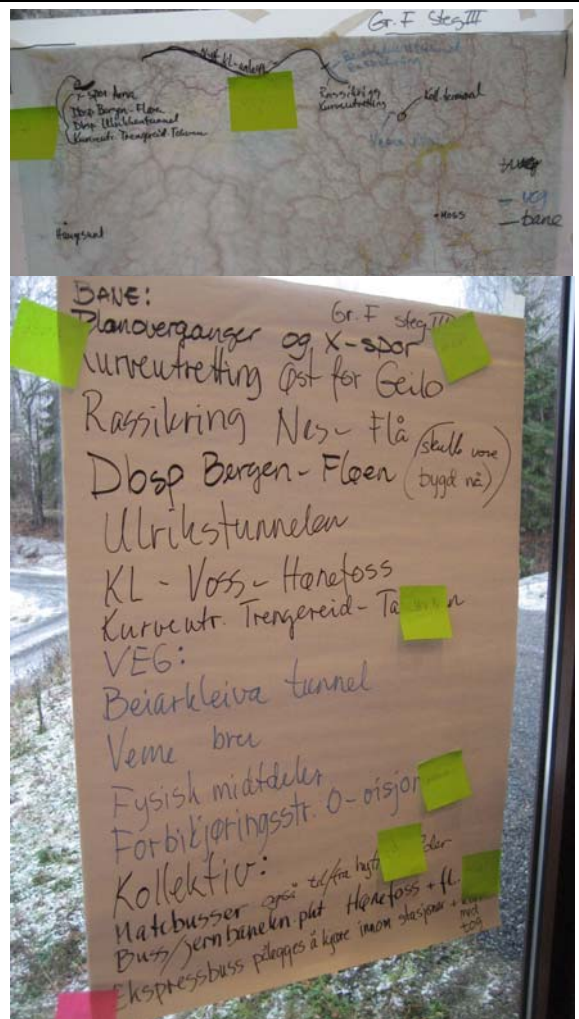 Gr. F Steg III
Nytt KL-anlegg
X-spor Arna
Dbsp Bergen-Fløen
Dbsp Ulrikkentunnel
Kurveutr. Trengereid-
Rassikring
Kurveutretting
Koll.terminal
veg
bane
Moss
BANE:
Gr. F steg III
Planoverganger og X-spor
Kurveutretting Øst for Geilo
Rassikring Nes - Flå
Dbsp Bergen - Fløen (skulle vore bygd nå)
Ulrikstunnelen
KL - Voss - Hønefoss
Kurveutr. Trengereid -
VEG:
Beiarkleiva tunnel
Veme bru
Fysisk midtdeler
Forbikjøringsstr. 0-visjon
Kollektiv:
Matebusser også til/fra
Buss/jernbanekn.pkt Hønefoss + fl.
Ekspressbuss pålegges å kjøre innom stasjoner +
med
tog